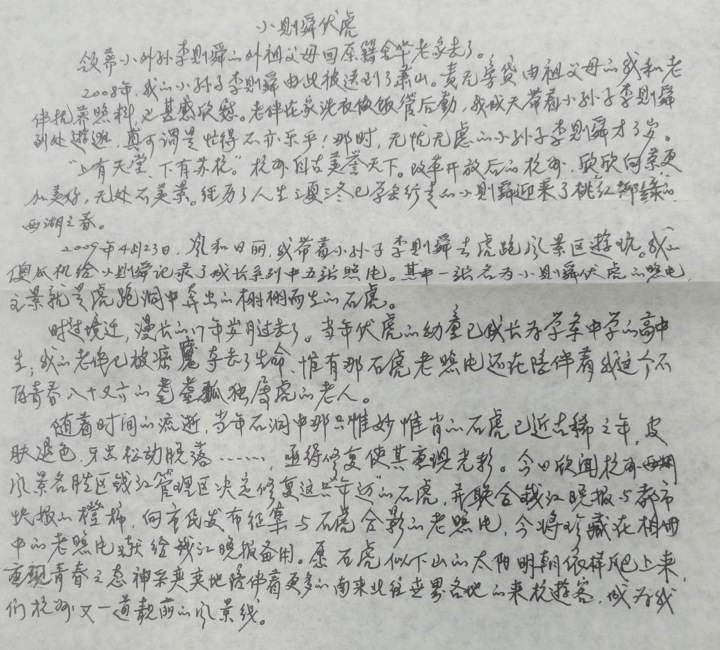 小则舜伏虎
领养小外孙李则舜的外祖父母回原籍金华老家去了。
2008年,我的小孙子李则舜由此被送到了萧山。责无旁贷由祖父母的我和老
伴抚养照料,也甚感欣慰。老伴在家洗衣做饭管后勤,我成天带着小孙子李则舜
到处游逛,真可谓是忙得不亦乐乎!那时,无忧无虑的小孙子李则舜才3岁。
“上有天堂、下有苏杭。”杭州自古美誉天下。改革开放后的杭州,欣欣向荣更
加美好,无处不美景。经历了人生三夏三冬已学会行走的小则舜迎来了桃红柳绿的
西湖之春。
2009年4月23日,风和日丽,我带着小孙子李则舜去虎跑风景区游玩。我的
傻瓜机给小则舜记录了成长系列中五张照片。其中一张名为小则舜伏虎的照片,
主景就是虎跑洞中奔出的栩栩而生的石虎。
时过境迁,漫长的17年岁月过去了。当年伏虎的幼童已成长为学军中学的高中
生;我的老伴已被癌魔夺去了生命,惟有那石虎老照片还在陪伴着我这个不
再青春八十又六的茕茕孤独孱虎的老人。
随着时间的流逝,当年石洞中那只惟妙惟肖的石虎已近古稀之年,皮
肤退色,牙齿松动脱落……,亟待修复使其重现光彩。今日欣闻杭州西湖
风景名胜区钱江管理区决定修复这只“年迈”的石虎,并联合钱江晚报与都市
快报的橙柿,向市民发布征集与石虎合影的老照片,今将珍藏在相册
中的老照片献给钱江晚报备用。愿石虎似下山的太阳明朝依样爬上来,
重现青春之态神采奕奕地陪伴着更多的南来北往世界各地的来杭游客,成为我
们杭州又一道靓丽的风景线。